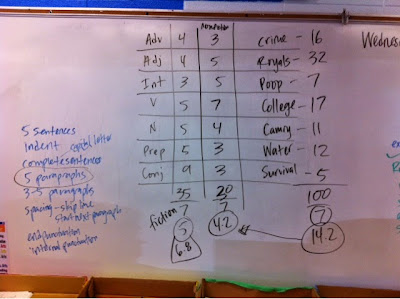 Adv 4 3 Crime - 16
Adj 4 5 Royals - 32
Int 3 5 Poop - 7
V 5 7 College - 17
N 5 4 Camry - 11
Prep 5 3 Water - 12
Conj 9 3 Survival - 5
35 20 100
fiction 7 7 7
5 4.2 14.2
6.8
Wednes
5 sentences
indent capital letter
complete sentences
5 paragraphs
3-5 paragraphs
spacing - skip line
start next paragraph
end punctuation
internal punctuation